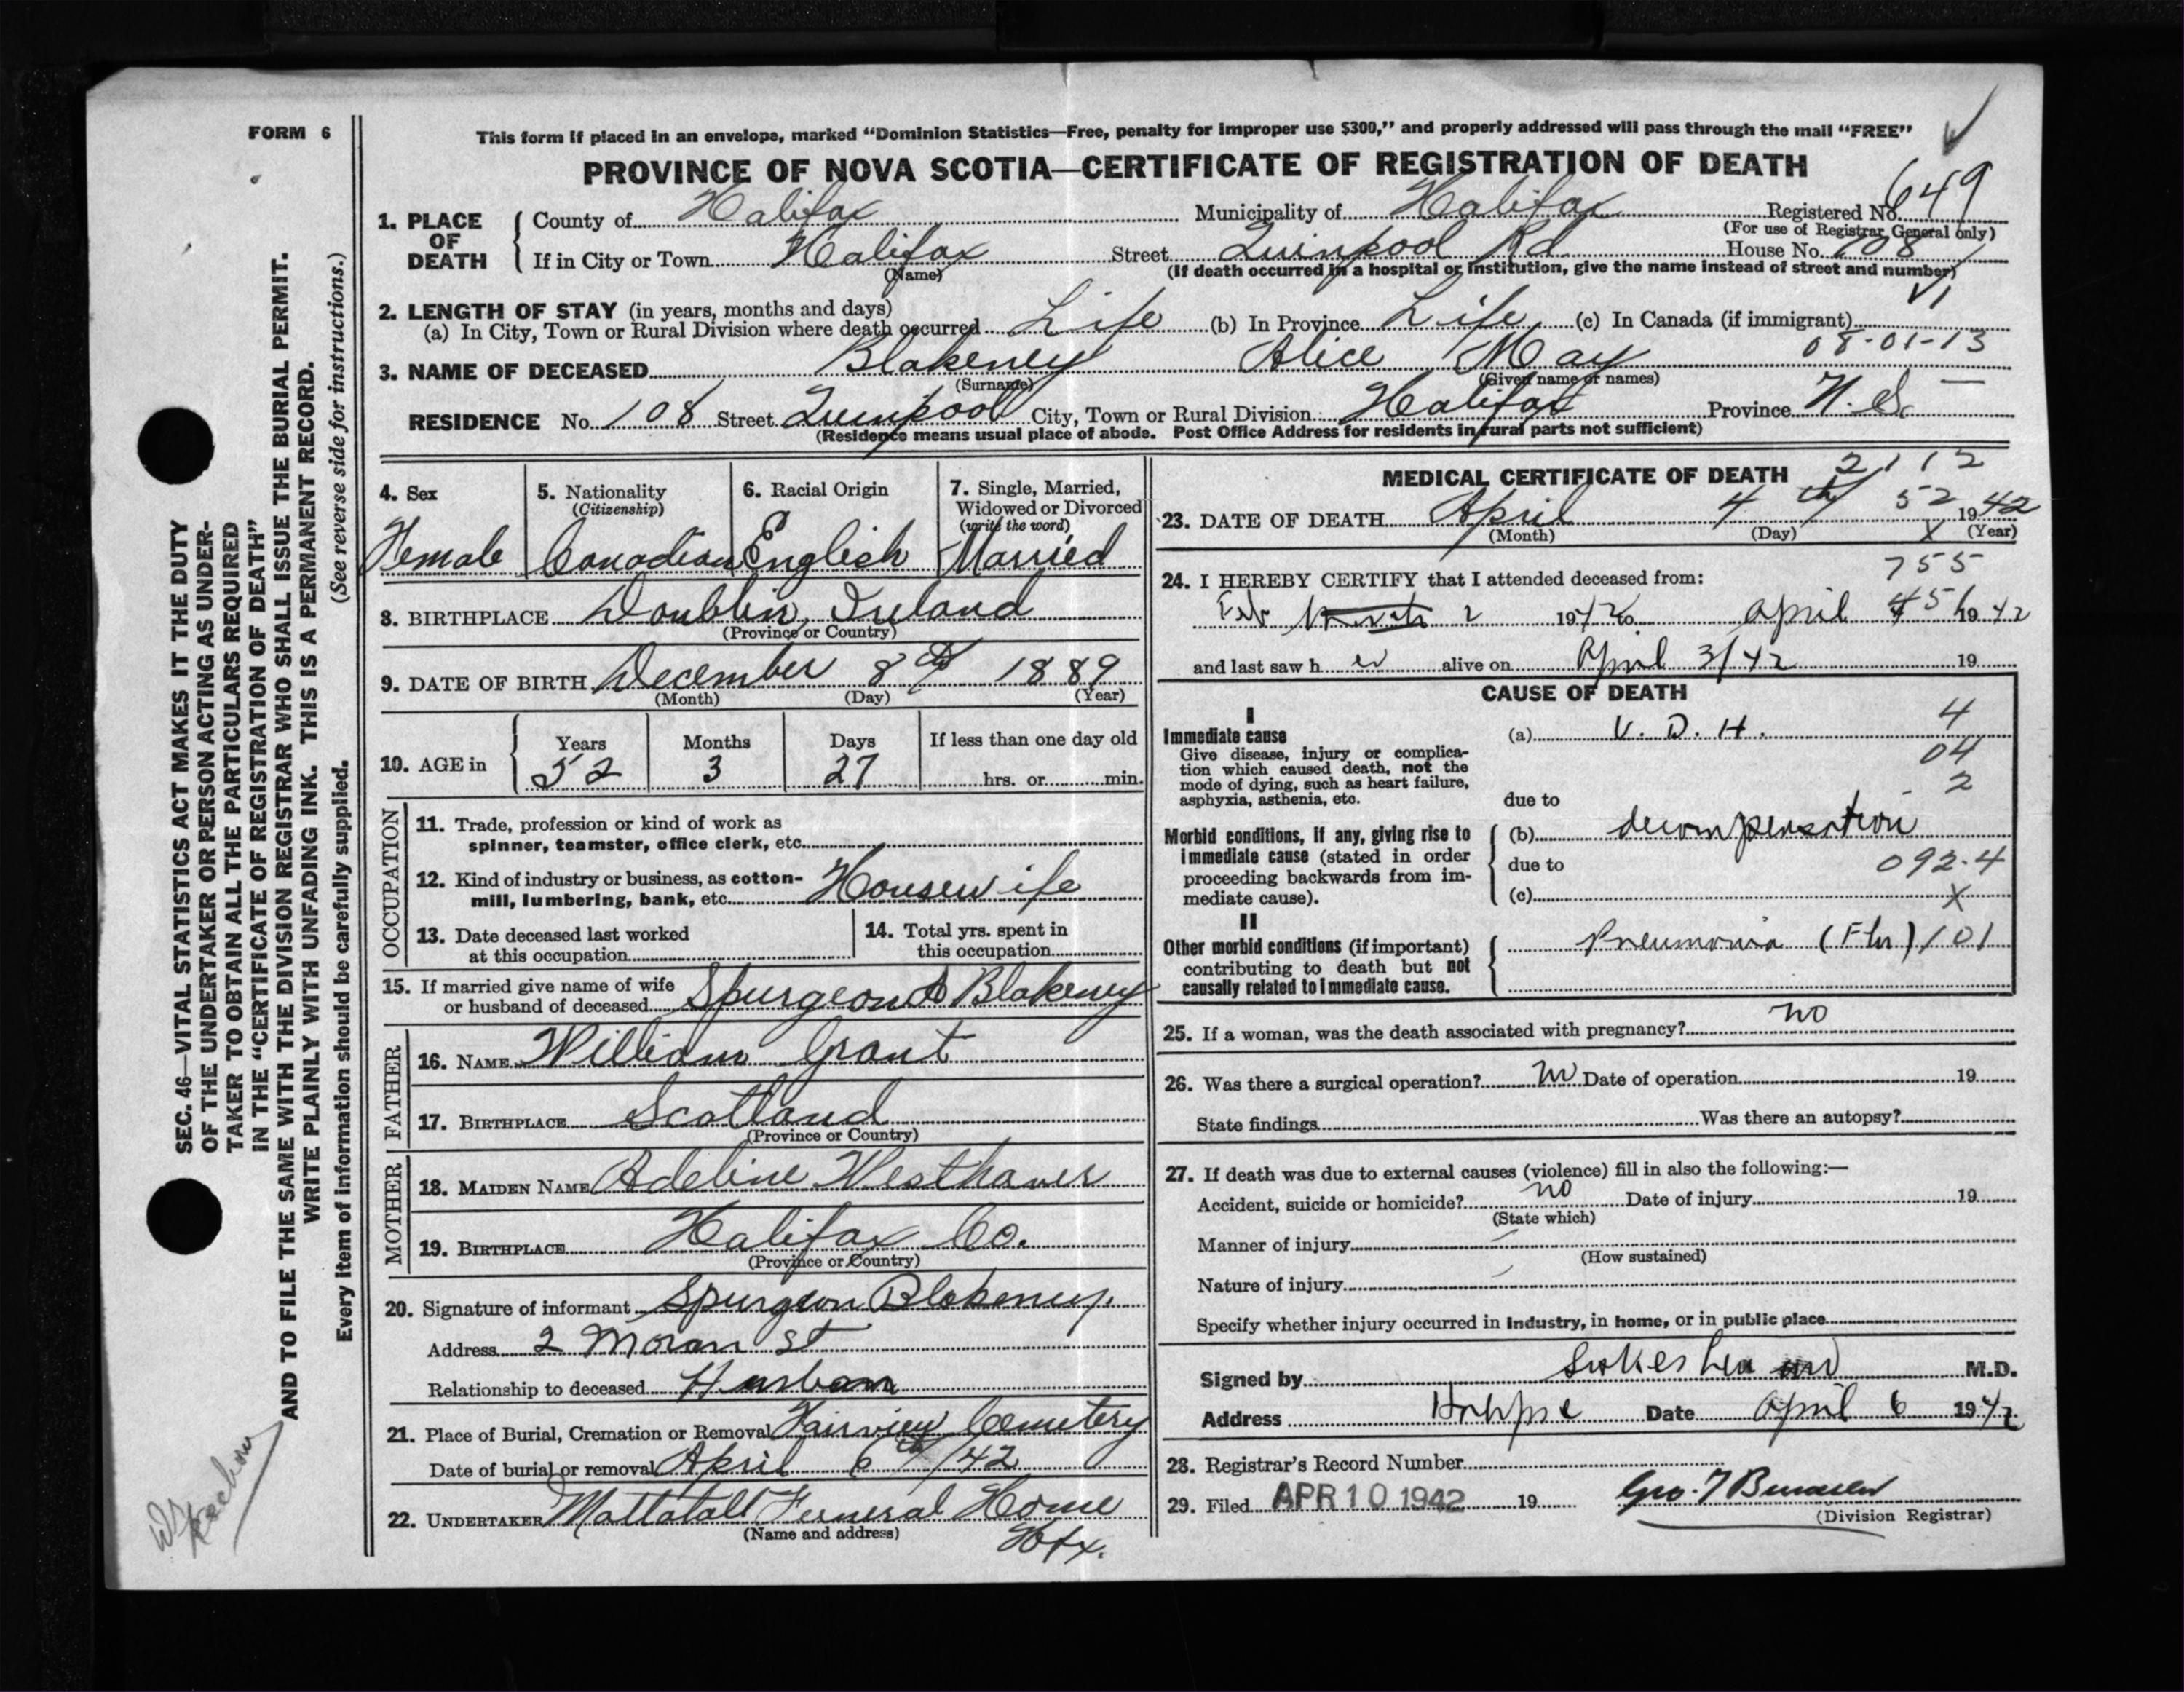 FORM 6
This form if placed in an envelope, marked "Dominion Statistics—Free, penalty for improper use $300," and properly addressed will pass through the mail "FREE"
PROVINCE OF NOVA SCOTIA—CERTIFICATE OF REGISTRATION OF DEATH
1. PLACE OF DEATH
County of Halifax Municipality of Halifax Registered No. 649
(For use of Registrar General only)
If in City or Town Halifax Street Quinpool Rd. House No. 108
(Name) (If death occurred in a hospital or institution, give the name instead of street and number)
2. LENGTH OF STAY (in years, months and days)
(a) In City, Town or Rural Division where death occurred Life (b) In Province Life (c) In Canada (if immigrant)
08-01-13
3. NAME OF DECEASED Blakeney Alice May
(Surname) (Given name or names)
RESIDENCE No. 108 Street Quinpool City, Town or Rural Division Halifax Province N.S.
(Residence means usual place of abode. Post Office Address for residents in rural parts not sufficient)
4. Sex
Female
5. Nationality
(Citizenship)
Canadian
6. Racial Origin
English
7. Single, Married,
Widowed or Divorced
(write the word)
Married
8. BIRTHPLACE Doublin, Ireland
(Province or Country)
9. DATE OF BIRTH December 8th 1889
(Month) (Day) (Year)
10. AGE in
Years Months Days If less than one day old
52 3 27 hrs. or min.
OCCUPATION
11. Trade, profession or kind of work as
spinner, teamster, office clerk, etc.
12. Kind of industry or business, as cotton-
mill, lumbering, bank, etc. Housewife
13. Date deceased last worked
at this occupation
14. Total yrs. spent in
this occupation
15. If married give name of wife
or husband of deceased Spurgeon A Blakeney
FATHER
16. NAME William Grant
17. BIRTHPLACE Scotland
(Province or Country)
MOTHER
18. MAIDEN NAME Adeline Westhaver
19. BIRTHPLACE Halifax Co.
(Province or Country)
20. Signature of informant Spurgeon Blakeney
Address 2 Moran St
Relationship to deceased Husban
21. Place of Burial, Cremation or Removal Fairview Cemetery
Date of burial or removal April 6th/42
22. UNDERTAKER Mattatall Funeral Home
(Name and address)
Hfx.
MEDICAL CERTIFICATE OF DEATH 2112
23. DATE OF DEATH April 4th 52 1942
(Month) (Day) X (Year)
755
24. I HEREBY CERTIFY that I attended deceased from:
Feb 2 1942 to April 1942
and last saw h er alive on April 3/42 19
CAUSE OF DEATH
I
Immediate cause
Give disease, injury or complica-
tion which caused death, not the
mode of dying, such as heart failure,
asphyxia, asthenia, etc.
(a) V. D. H. 4
04
2
due to
Morbid conditions, if any, giving rise to
immediate cause (stated in order
proceeding backwards from im-
mediate cause).
(b) decompensation
due to 092.4
(c) X
II
Other morbid conditions (if important)
contributing to death but not
causally related to immediate cause.
Pneumonia (Flu) 101
25. If a woman, was the death associated with pregnancy? no
26. Was there a surgical operation? no Date of operation 19
State findings Was there an autopsy?
27. If death was due to external causes (violence) fill in also the following:—
Accident, suicide or homicide? no Date of injury 19
(State which)
Manner of injury
(How sustained)
Nature of injury
Specify whether injury occurred in industry, in home, or in public place
Signed by M.D.
Address Date April 6 1942
28. Registrar's Record Number
29. Filed APR 10 1942 19
(Division Registrar)
SEC. 46—VITAL STATISTICS ACT MAKES IT THE DUTY
OF THE UNDERTAKER OR PERSON ACTING AS UNDER-
TAKER TO OBTAIN ALL THE PARTICULARS REQUIRED
IN THE "CERTIFICATE OF REGISTRATION OF DEATH"
AND TO FILE THE SAME WITH THE DIVISION REGISTRAR WHO SHALL ISSUE THE BURIAL PERMIT.
WRITE PLAINLY WITH UNFADING INK. THIS IS A PERMANENT RECORD.
(See reverse side for instructions.)
Every item of information should be carefully supplied.